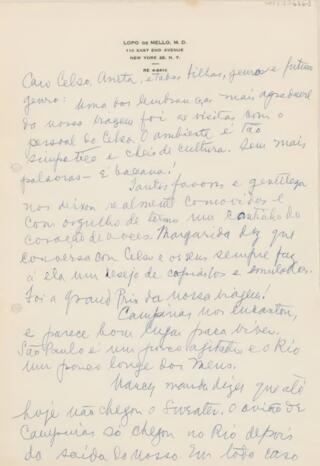 LOPO DE MELLO, M. D.
110 EAST END AVENUE
NEW YORK 28, N. Y.
RE 4-2410
Caro Celso, Aneta, e todas filhas, genros e futuro
genro: Uma das lembranças mais agradavel
da nossa viagem foi as visitas com o
pessoal do Celso. O ambiente é tão
simpatico e cheio de cultura. Sem mais
palavras — É bacana!
Tantos favores e gentileza
nos deixou realmente comovidos e
com orgulho de termos um cantinho do
coração de voces. Margarida diz que
conversa com Celso e os seus sempre faz
á ela um desejo de
Foi a grand Prix da nossa viagem!
Campinas nos encantou,
e parece bom lugar para viver.
São Paulo é um pouco agitado e o Rio
um pouco longe dos meus.
Nancy manda dizer que até
hoje não chegou o Sweater. O avião de
Campinas só chegou no Rio depois
da saida do nosso. Em todo caso